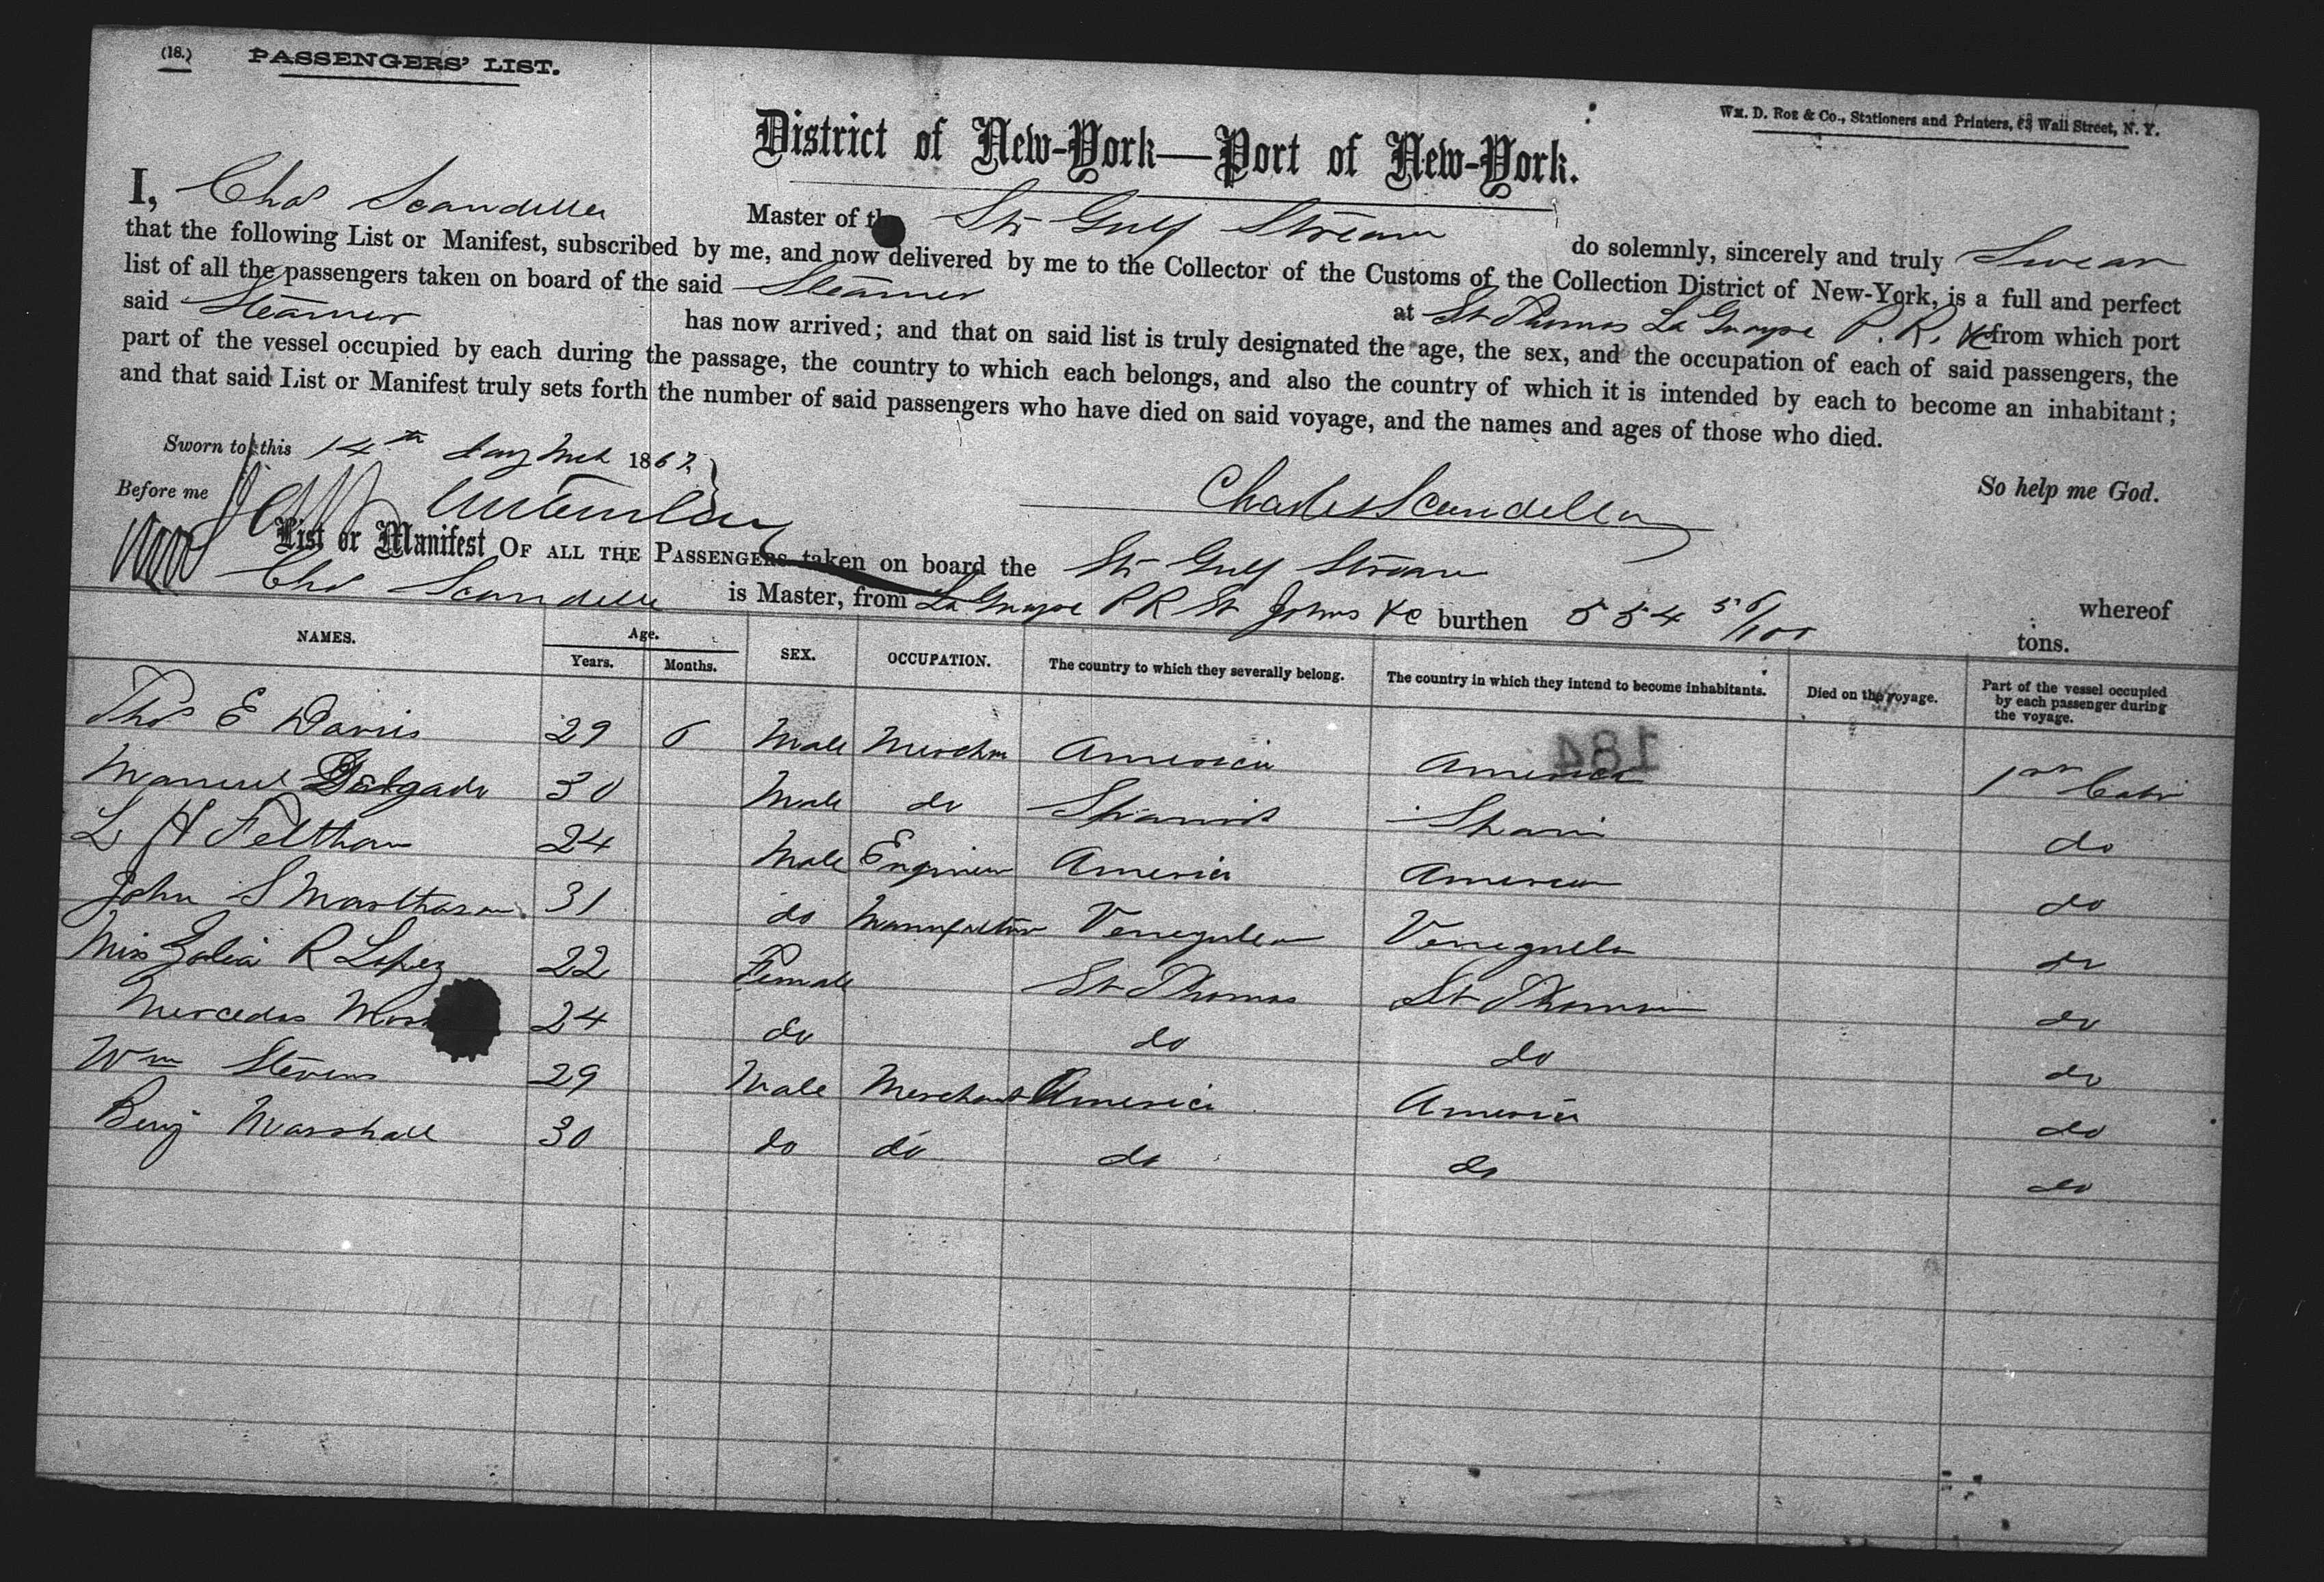 (18.) PASSENGERS' LIST.
Wm. D. Roe & Co., Stationers and Printers, 63 Wall Street, N. Y.
District of New-York—Port of New-York.
I, Chas Scandella Master of the Str Gulf Stream do solemnly, sincerely and truly Swear
that the following List or Manifest, subscribed by me, and now delivered by me to the Collector of the Customs of the Collection District of New-York, is a full and perfect
list of all the passengers taken on board of the said Steamer at St Thomas La Guayra P. R. &c from which port
said Steamer has now arrived; and that on said list is truly designated the age, the sex, and the occupation of each of said passengers, the
part of the vessel occupied by each during the passage, the country to which each belongs, and also the country of which it is intended by each to become an inhabitant;
and that said List or Manifest truly sets forth the number of said passengers who have died on said voyage, and the names and ages of those who died.
So help me God.
Sworn to this 14th day 1867,
Before me
Charles Scandella
List or Manifest OF ALL THE PASSENGERS taken on board the Str Gulf Stream whereof
Chas Scandella is Master, from La Guayra P R St Johns &c burthen 554 56/100 tons.
NAMES. Age. Years. Months. SEX. OCCUPATION. The country to which they severally belong. The country in which they intend to become inhabitants. Died on the voyage. Part of the vessel occupied by each passenger during the voyage.
184
Thos E Davis 29 6 Male Merchn America America 1st Cabi
Manuel Delgado 30 Male do Spain do
L H Feltham 24 Male Engineer America America do
John S 31 do Manufactur Venezuela Venezuela do
Miss R Lopez 22 Female St Thomas St Thomas do
Mercedes 24 do do do do
Wm Stevens 29 Male Merchant America America do
Benj Marshall 30 do do do do do